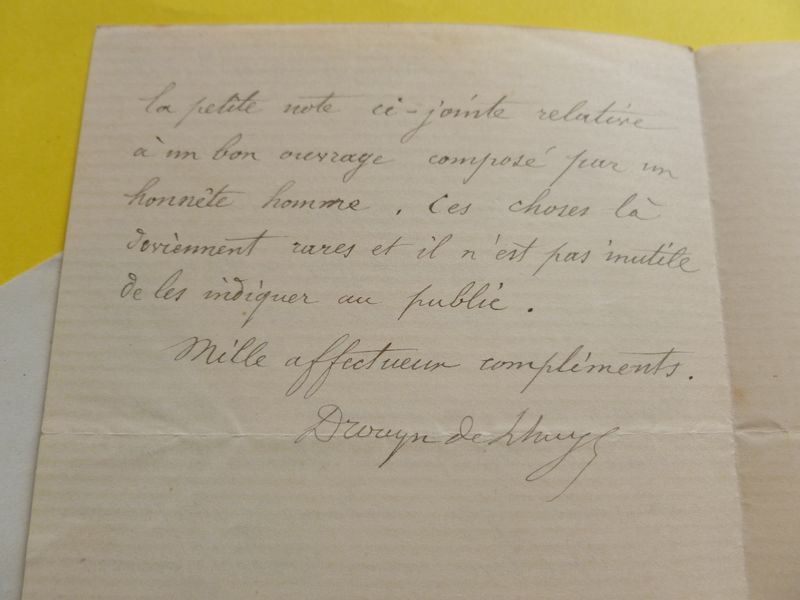 la petite note ci-jointe relative
à un bon ouvrage composé par un
honnête homme. Ces choses là
deviennent rares et il n'est pas inutile
de les indiquer au public.
Mille affectueux compliments.
Drouyn de Lhuys